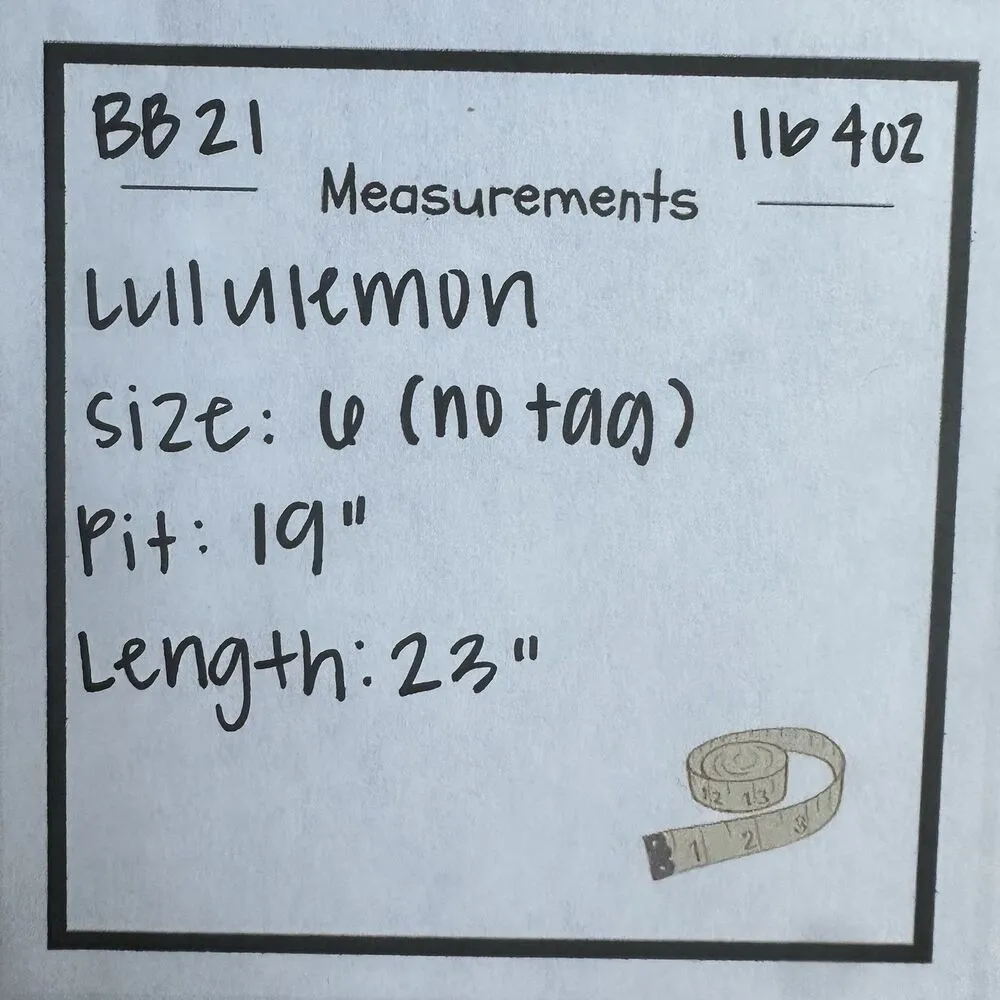 BB21 11b 4oz
Measurements
Lululemon
Size: 6 (no tag)
Pit: 19"
Length: 23"
12 13
1 2 3